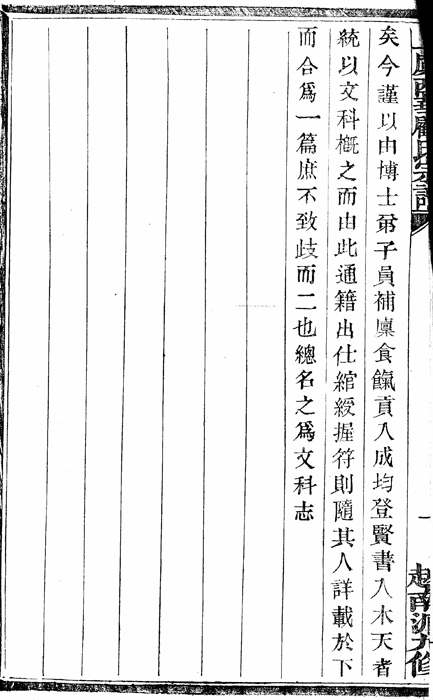 矣今謹以由博士弟子員補廩食餼貢入成均登賢書入木天者
統以文科槪之而由此通籍出仕綰綬握符則隨其人詳載於下
而合爲一篇庶不致歧而二也總名之爲文科志